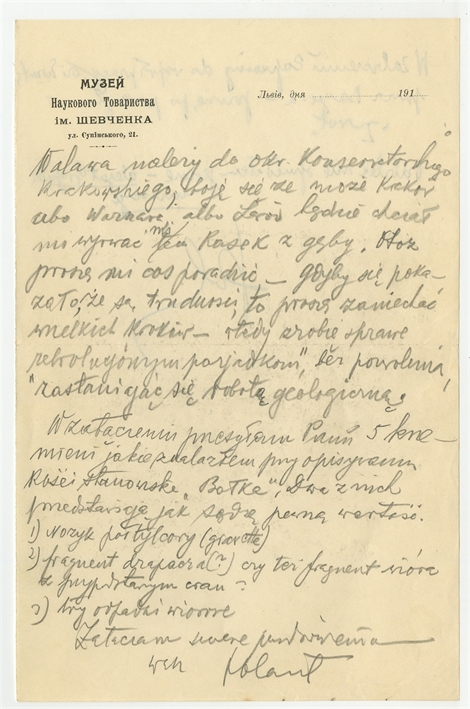 МУЗЕЙ
Наукового Товариства
ім. ШЕВЧЕНКА
ул. Супінського, 21.
Львів, дня 191
Walawa należy do okr. Konserwatorskiego
Krakowskiego, boję się że może Kraków
albo Warszawa, albo Lwów będzie chciał
mi wyrwać ten kąsek z gęby. Otóż
proszę mi coś poradzić – gdyby się poka-
zało, że są trudności, to proszę zaniechać
wszelkich kroków – wtedy zrobię sprawę
"rewolucyjnym porządkom", bez pozwolenia,
"zasłaniając się robotą geologiczną.
W załączeniu przesyłam Panu 5 krze-
mieni jakie znalazłem przy opisywaniu
Kości stanowiska "Bołka", Dwa z nich
przedstawiają jak sądzę pewną wartość.
1) Nożyk poztylcowy (gravette)
2) fragment drapacza (?) czy też fragment wióra
z przypłaszczanym
3) trzy odpadki wiórowe
Załączam